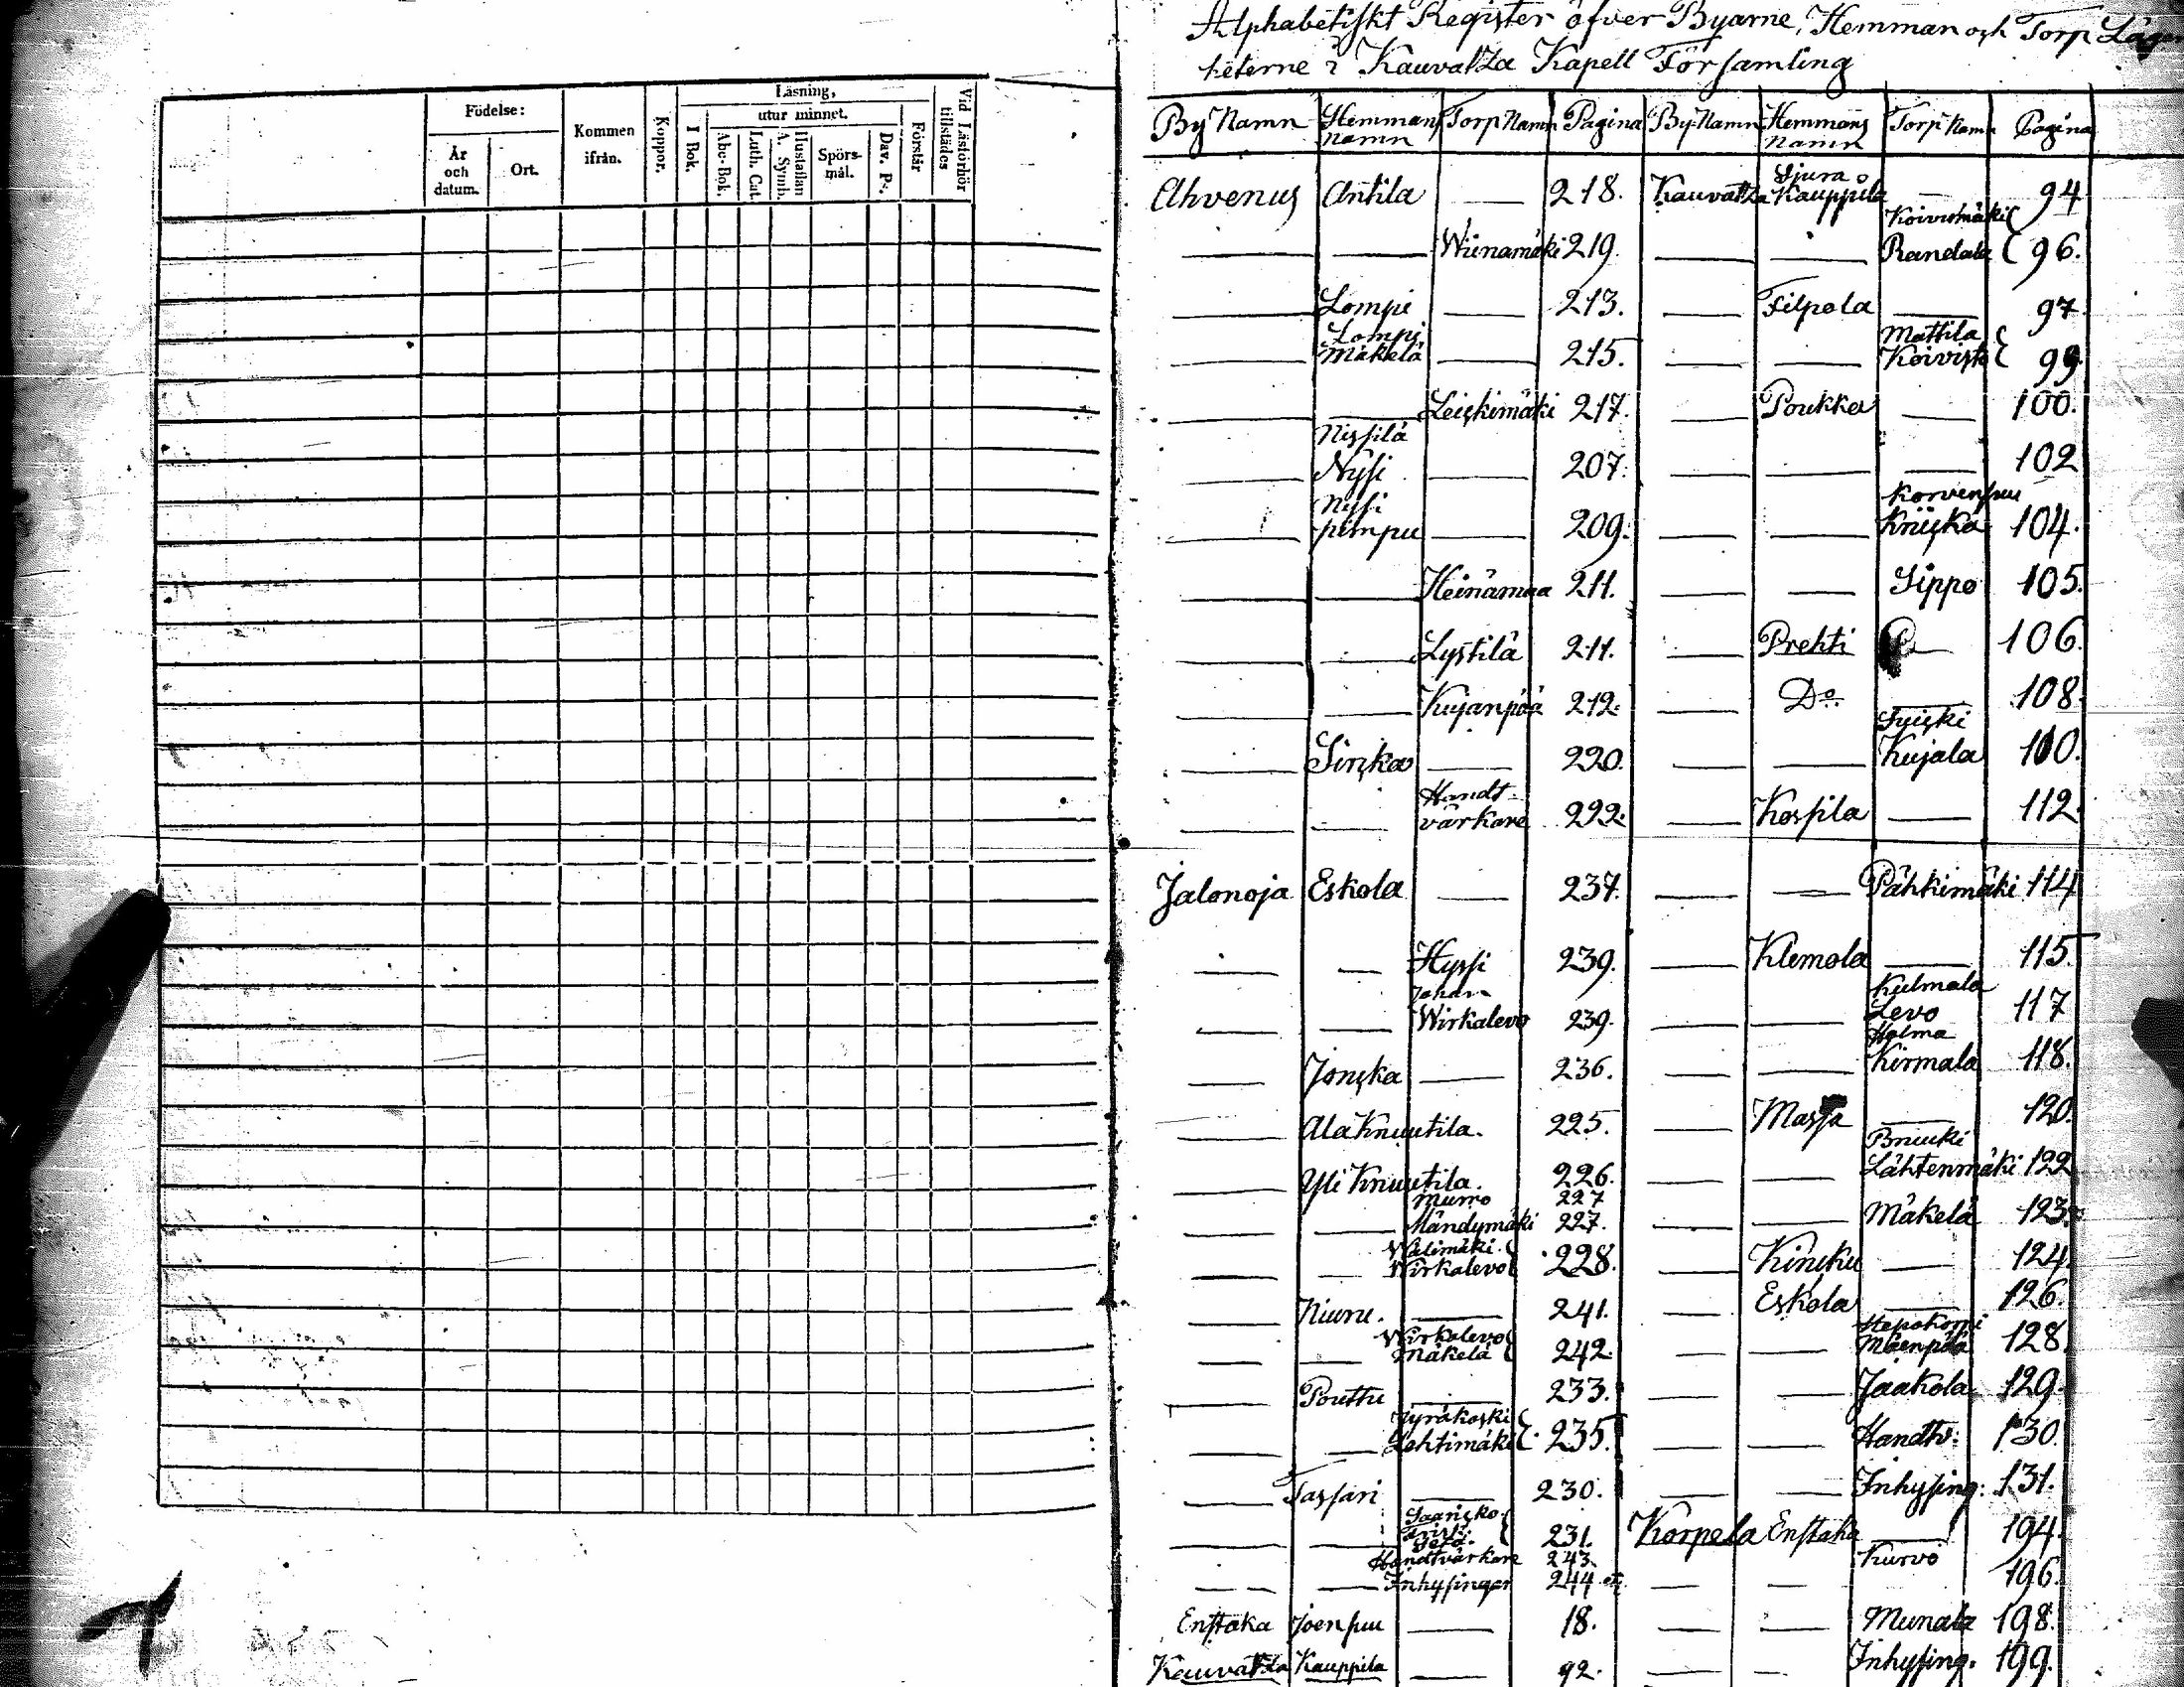 Födelse:
År
och
datum.
Ort.
Kommen
ifrån.
Koppor.
Läsning,
utur minnet.
I Bok.
Abc-Bok.
Luth. Cat.
Hustaflan
A. Symb.
Spörs-
mål.
Dav. Ps.
Förstår
Vid Läsförhör
tillstädes
Alphabetiskt Register öfver Byarne, Hemman och Torp Lägen
heterne i Kauvatza Kapell Församling
By Namn Hemmans Namn Torp Namn Pagina
Ahvenus Antila — 218.
— — Wiinamäki 219.
— Lompi — 213.
— Lompi Mäkelä — 215.
— — Leiskimäki 217.
Nissilä
— Nyssi — 207.
— Nyssi pimpu — 209.
— — Heinämaa 211.
— — Lystilä 211.
— — Kujanpää 212.
— Sinska — 220.
— — Handtvärkare 222.
Jalonoja Eskola — 237.
— — Hyssi 239.
— — Johan Wirkalevo 239.
— Jonska — 236.
— Ala Knuutila. 225.
— Yli Knuutila. 226.
Murro 227
— — Mändymäki 227.
— — Wälimäki Wirkalevo 228.
— Niuru. — 241.
— — Wirkalevo Mäkelä 242.
— Pouttu — 233.
— — Jyräkoski Lehtimäki 235.
— Tassari — 230.
— — 231.
Handtvärkare 243.
— — Inhysingar 244
Enstaka Joensuu — 18.
Kauvatza Kauppila — 92.
By Namn Hemmans Namn Torp Namn Pagina
Kauvatza Sjura Kauppila — 94
— — Koivumäki Randala 96.
— Filpola — 97
— — Mattila Koivisto 99
— Poukka — 100.
— — — 102
— — Korvenpuu Kniiska 104.
— — Sippo 105.
— Prehti — 106
— Do. — 108.
— — Kujala 110.
— Kospila — 112.
— — Pähkimäki 114
— Klemola — 115
— — Kulmala Levo 117
— — Halma Kirmala 118.
— Massa — 120.
— — Lähtenmäki 122
— — Mäkelä 123.
— Kinsku — 124.
— Eskola — 126.
— — Mäenpää 128.
— — Jaakola 129.
— — Handtv. 130.
— — Inhysing. 131.
Korpela Enstaka — 194.
— — Kurvo 196.
— — Munala 198.
— — Inhysing. 199.